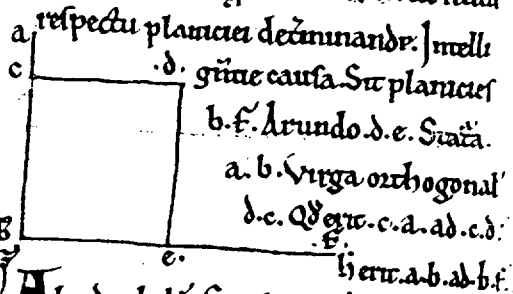 a respectu planiciei det̄minandę. Intelli
c .d. gn̄tie causa. Sit planicies
b.f. Arundo.d.e. Stat̄a.
a.b. Virga orthogonal'
d.c. Qd̄ erit.c.a.ad.c.d.
B e. .f. h̄ erit.a.b.ad.b.f.